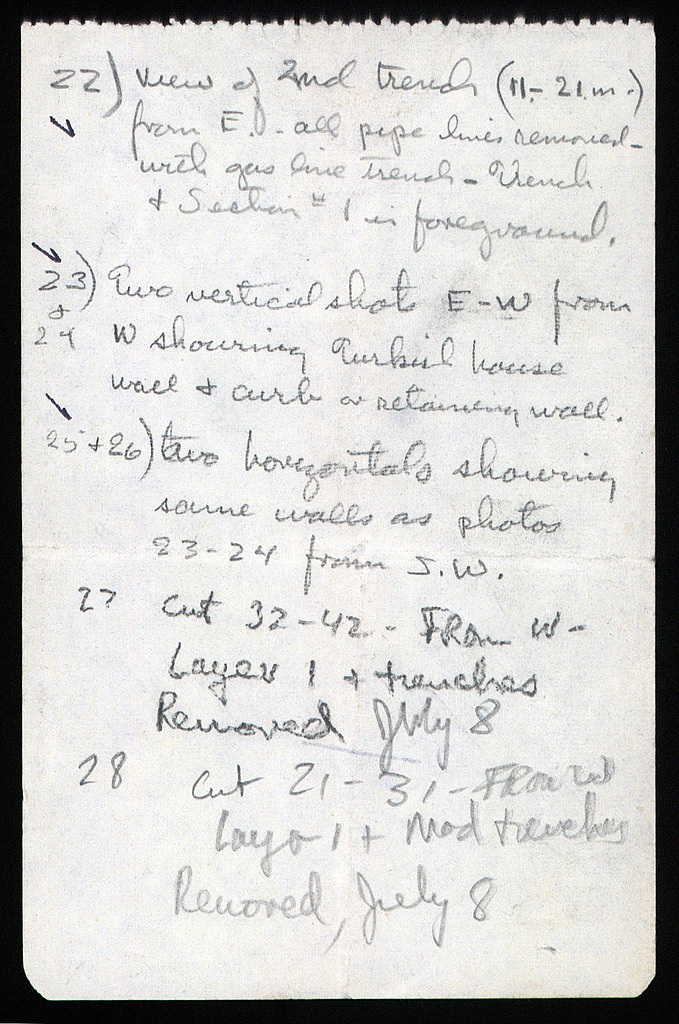 22) View of 2nd trench (11-21 m.)
from E. - all pipe lines removed -
with gas line trench - Trench
+ Section #1 in foreground.
23) Two vertical shots E-W from
+
24 W showing Turkish house
wall + curb or retaining wall.
25 + 26) two horizontals showing
same walls as photos
23-24 from S.W.
27 Cut 32-42 - From W -
Layer 1 + trenches
Removed July 8
28 Cut 21-31 - From W
Layer 1 + Mod trenches
Removed, July 8